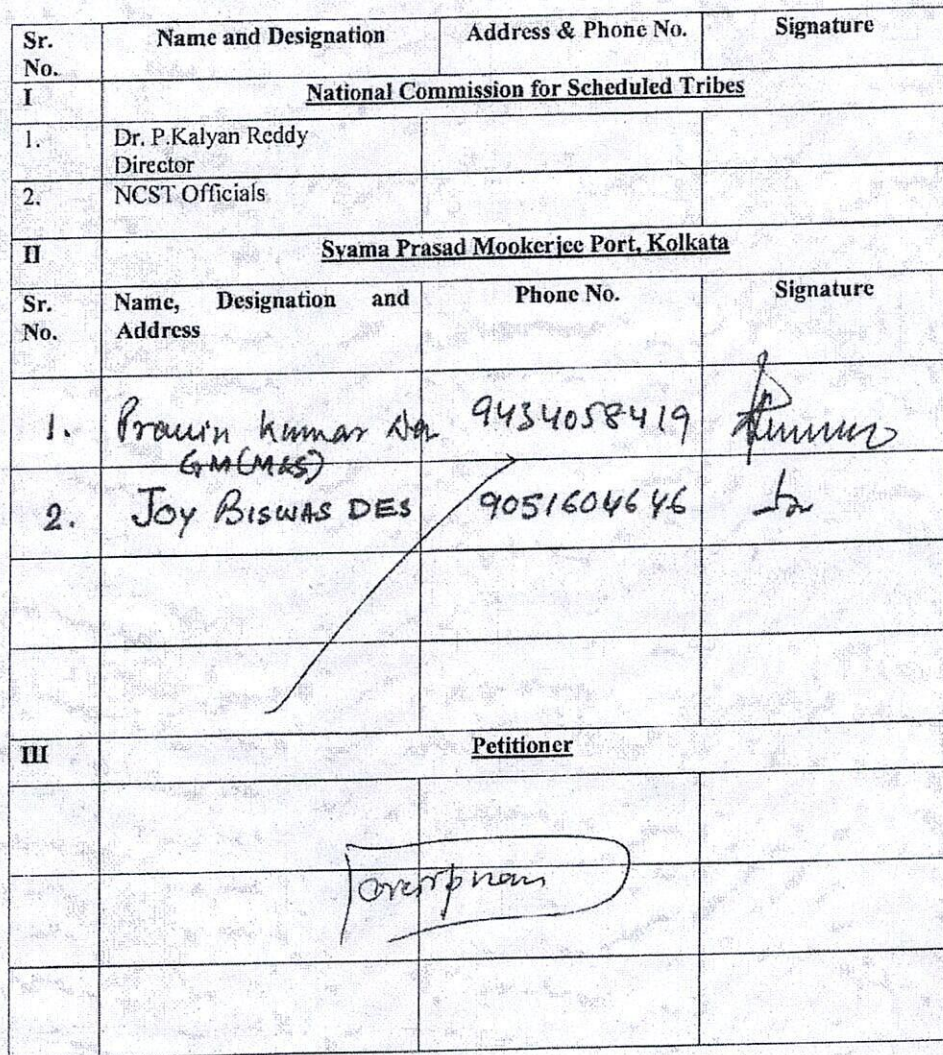 Sr. No. Name and Designation Address & Phone No. Signature
I National Commission for Scheduled Tribes
1. Dr. P.Kalyan Reddy
Director
2. NCST Officials
II Syama Prasad Mookerjee Port, Kolkata
Sr. No. Name, Designation and Address Phone No. Signature
1. Pravin Kumar 9434058419
GM(M&S)
2. JOY BISWAS DES 9051604646
III Petitioner